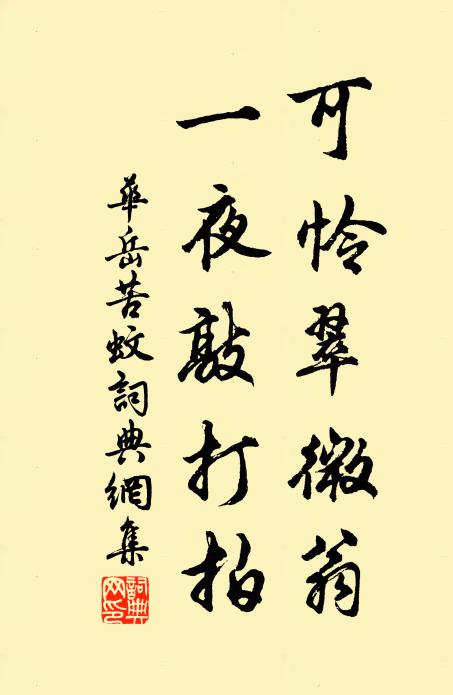 可憐翠微翁
一夜敲打拍
華岳苦蚊詞典網集
詞典網印